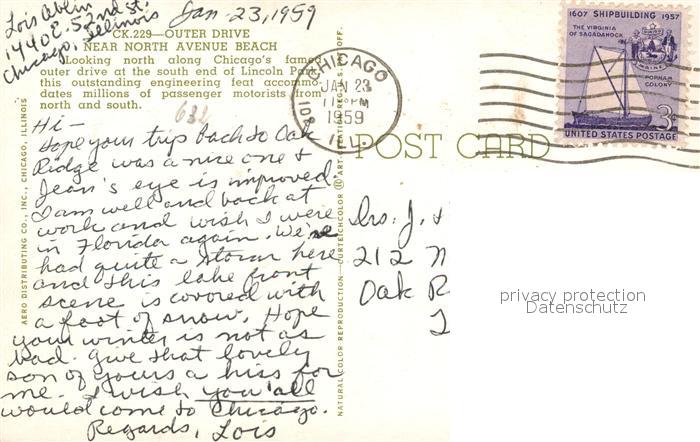 Jan-23,1959
Lois
1440 E. 52nd St.
Chicago, Illinois
CK.229—OUTER DRIVE
NEAR NORTH AVENUE BEACH
Looking north along Chicago's famed
outer drive at the south end of Lincoln Park
this outstanding engineering feat accommo-
dates millions of passenger motorists from
north and south.
632
Hi —
Hope your trip back to Oak
Ridge was a nice one &
Jean's eye is improved.
I am well and back at
work and wish I were
in Florida again. We've
had quite a storm here
and this lake front
scene is covered with
a foot of snow. Hope
your winter is not as
bad. Give that lovely
son of yours a kiss for
me. I wish you'all
would come to Chicago.
Regards, Lois
AERO DISTRIBUTING CO., INC., CHICAGO, ILLINOIS
NATURAL COLOR REPRODUCTION—CURTEICHCOLOR ® ART-CREATION REG. U.S. PAT. OFF.
CHICAGO
JAN 23
PM
1959
ILL.
POST CARD
1607 SHIPBUILDING 1957
THE VIRGINIA
OF SAGADAHOCK
MAINE
POPHAM
COLONY
3¢
UNITED STATES POSTAGE
Drs. J. &
212 N
Oak R
privacy protection
Datenschutz